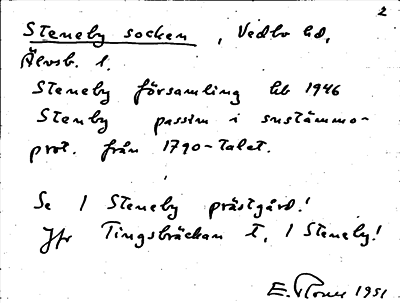 2
Steneby socken, Vedbo hd,
Älvsb. l.
Steneby församling lib 1946
Stenby passim i snstämmo-
prot. från 1790-talet.
Se 1 Steneby prästgård!
Jfr Tingsbräckan t, 1 Steneby!
E. 1951